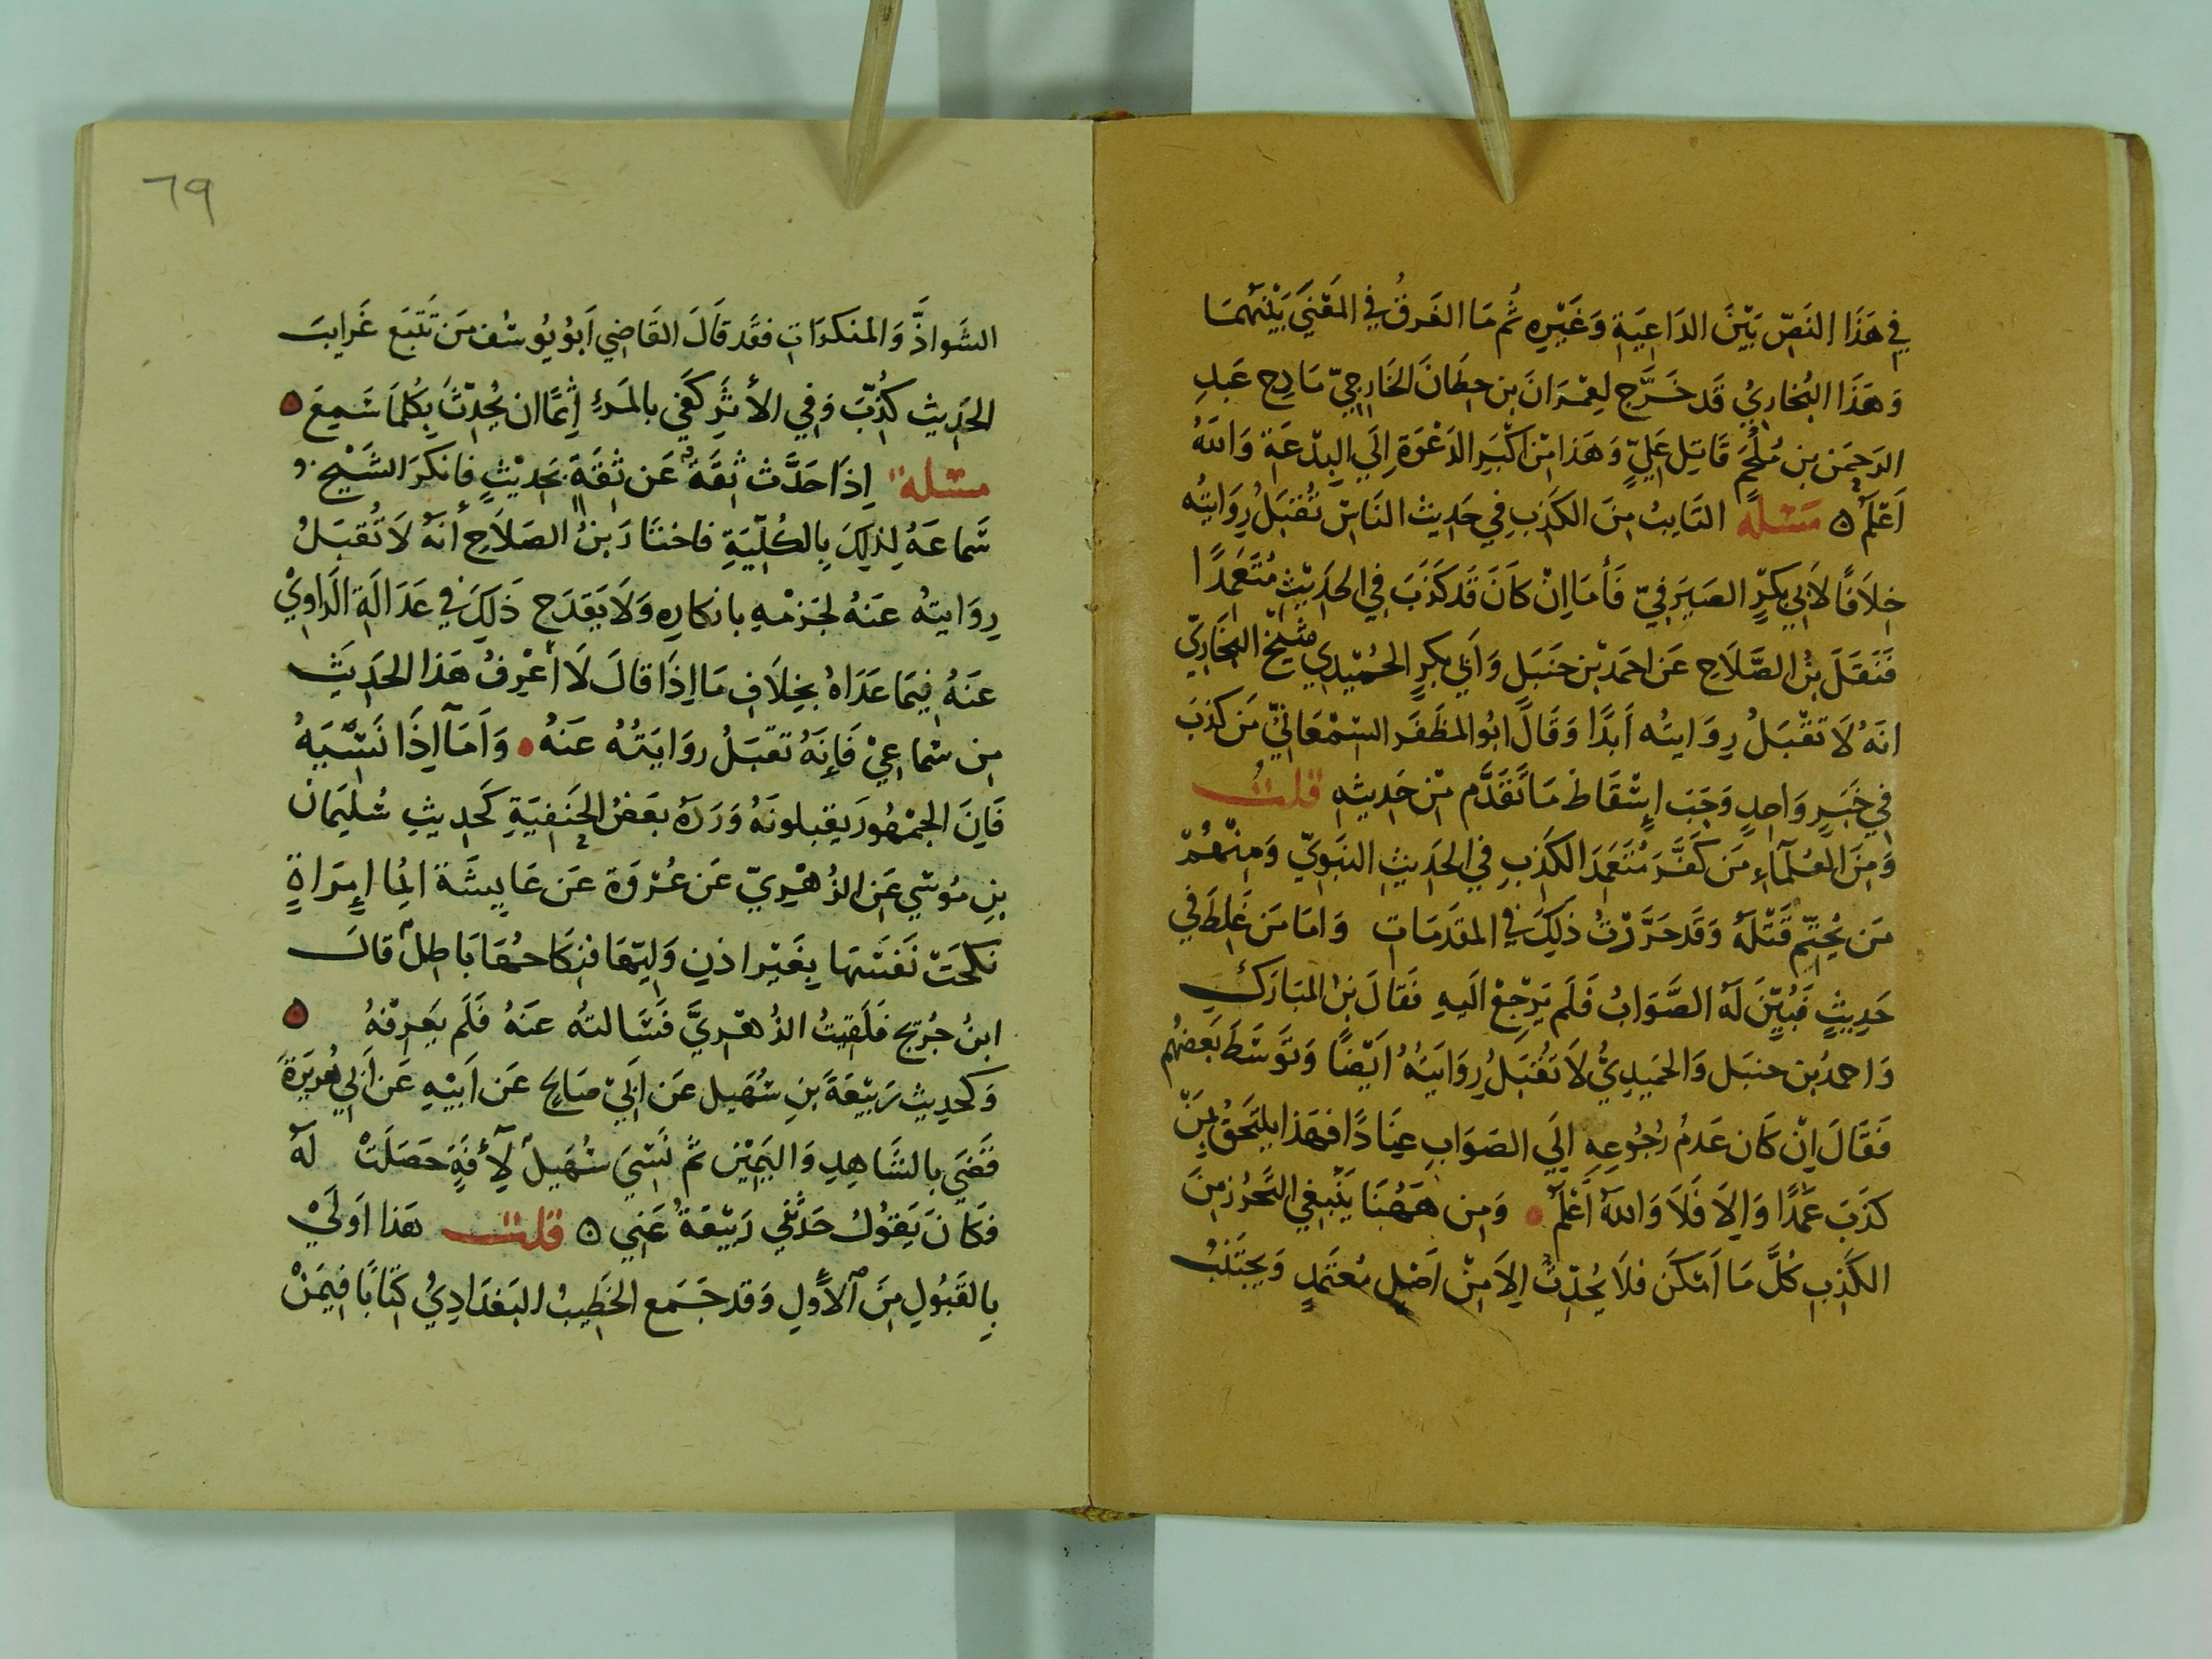 في هَذَا النَصّ بَيْنَ الدَاعِيَةِ وَغَيْرِه ثُم مَا الفَرقُ في المَعْنَي بَيْنَهُمَا
وَهَذَا البُخَارِيُ قَد خَرَّج لِعِمْرَانَ بن حِطَانَ الخَارِجِيّ مَادِح عَبدِ
الرَحمَن بن مُلْجَمَ قَاتِل عَلِيٍّ وَهَذا مْن اكْبَرِ الدَعْوَة اِلَي البِدْعَة وَاللهُ
اَعْلَم ه مَسْئلَه التَايبُ مِنَ الكَذِبِ فِي حَدِيث النَاسْ تُقبَلُ رِوَايتُه
خِلاَفًا لاَبِي بَكرٍ الصَيرَفيّ فَأمَا اِنْ كَانَ قَد كَذَبَ فِي الحَدِيْثِ مُتَعَمِدًا
فَنَقَلَ بنُ الصَّلَاحِ عَن احمَد بْن حَنبَل وَأبي بَكرٍ الحُمَيْدِي شَيْخ البُخَارِيّ
انهُ لَا تَقْبَلُ رِوَايتُه اَبَدًا وَقَالَ ابُو المظَفَّر السَمْعَانِيّ مَن كذبَ
فِي خَبَرٍ وَاحِدٍ وَجَبَ اِسْقَاطُ مَا تَقَدَّم مْن حَدِيثِهِ قلتُ
وَمِنَ العُلَمَآءِ مَن كَفَّرَ مُتَعَمِدَ الكَذِبِ فِي الحَدِيثِ النبَوِيّ وَمِنْهُمْ
مَن يُحَتِّم قَتْلَهُ وَقَد حَرَّرْتُ ذَلِكَ في المقَدَمَاتِ وَامَا مَن غَلِطَ في
حَدِيثٍ فَبُيِّنَ لَهُ الصَّوَابُ فَلَم يَرْجِعْ الَيهِ فَقَالَ بنُ المبَارَكِ
وَاحمدُ بن حنبَل وَالحمَيدِيُ لاَ تَقُبَلُ رِوَايَتُهُ اَيْضًا وَتَوَسَّطَ بَعضُهُم
فَقَالَ اِنْ كَان عَدمُ رُجُوعِهِ اِلَي الصَوَابِ عِنَادًا فهَذا يلتَحقُ بمَنْ
كذَبَ عَمْدًا وَاِلَا فَلاَ وَاللهُ اَعْلَم وَمِن هَهُنَا يَنْبغِي التَحَرُز مِنَ
الكَذِبِ كُلَّ مَا اَمْكَنَ فَلاَ يُحدِّثُ اِلاَ مِنْ اَصْلٍ مُعتَمدٍ وَيَجتَنِبُ
٦٩
الشَواذَّ وَالمنكرَاتِ فقَد قَالَ القَاضِي اَبُو يُوسُف مَن تَتَبَع غَرايبَ
الحَدِيث كُذِّبَ وَفِي الأثَرِ كَفَي بالمَرءِ اِثمًا ان يُحَدِّثَ بِكُلمَا سَمِعَ ه
مسئلة اِذَا حَدَّث ثِقَةٌ عَن ثِقَةٍ بحَدِيْثٍ فانكرَ الشَيْخ
سَمَاعَهُ لِذَلِكَ بِالكُلّيَةِ فاختَارَ بنُ الصَلاَحِ أنهُ لاَ تُقبَلُ
رِوَايتهُ عَنهُ لجَزمْهِ بانكارِهِ وَلاَ يَقدَح ذَلِكَ في عَدَالَة الرَاوِيْ
عَنهُ فِيمَا عَدَاهُ بخِلاَفِ مَا اِذَا قالَ لاَ أعْرِفُ هَذا الحَدِيْثَ
مِن سَمَاعِيْ فَاِنَهُ تقبَلُ روَايَتُهُ عَنهُ وَاَمَا اِذَا نَسِيَهُ
فَاِنَ الجمْهُورَ يقبلونَهُ وَرَدَهُ بعَضُ الحَنفِيَةِ كَحدِيثِ سُليمَان
بنِ مُوسَي عَن الزُهْرِيّ عَن عُرْوَة عَن عَايِشَة ايُمَا اِمرَاةٍ
نَكَحَتْ نَفسَهَا بِغَيْر اذنِ وَلِيّهَا فنِكَاحُهَا بَاطِلٌ قالَ
ابنُ جُرَيْج فلَقِيتُ الزُهْرِيَّ فسَالتهُ عنَهُ فَلَم يَعرِفهُ ه
وَكَحَدِيث رَبِيْعَةَ بنِ سُهَيل عَن اَبِي صَالحٍ عَن اَبِيْهِ عَن اَبِي هُرَيرَةَ
قَضَي بِالشَاهِدِ وَاليَمِيْنِ ثمّ نَسِيَ سُهَيلٌ لِآفَةٍ حَصَلَتْ لَهُ
فكَانَ يَقوُلُ حَدَثَنِي رَبِيْعَةُ عَنِي ه قلت هَذا اَولَيْ
بِالقَبُولِ مِنَ الاَولِ وَقد جَمَع الخَطِيبُ البَغدَادِيُ كِتَابًا فِيمَنْ